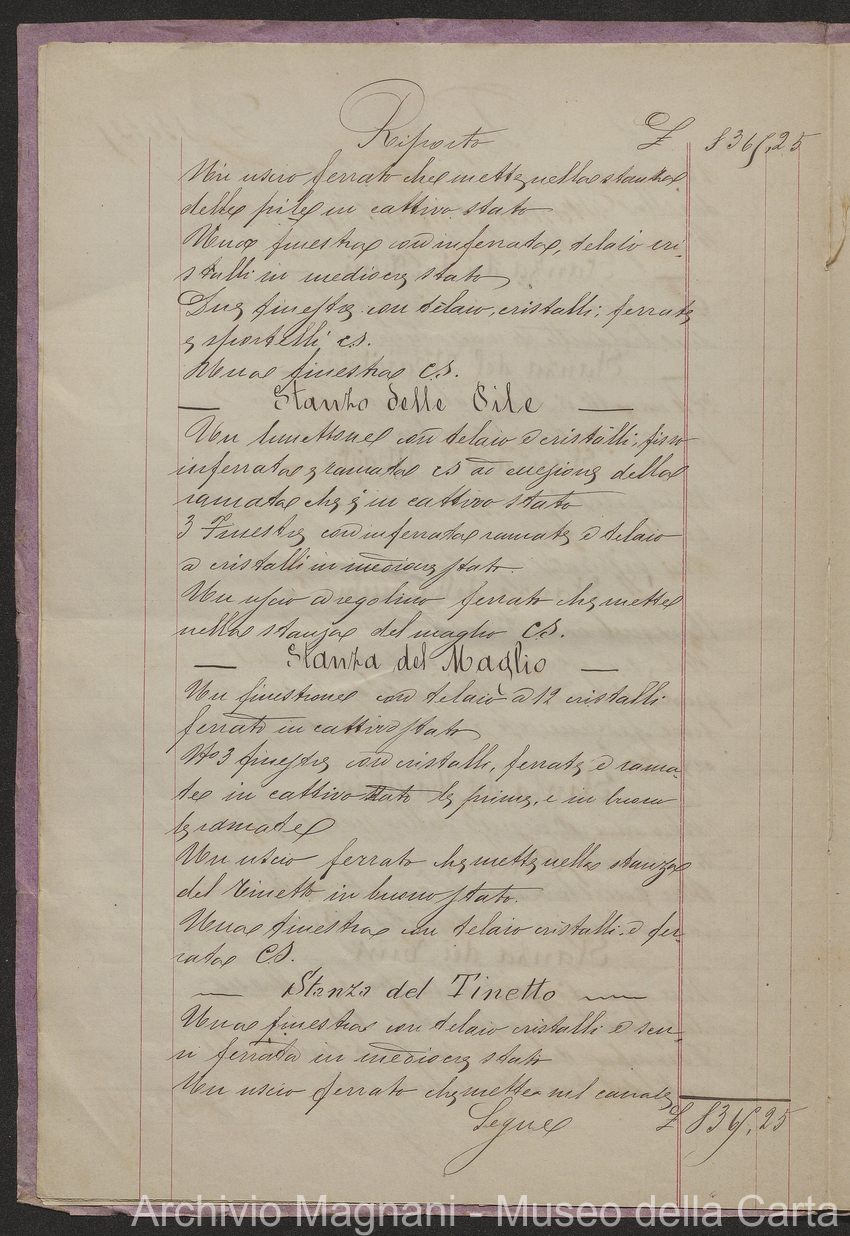 Riporto £ 836,25
Un uscio ferrato che mette nella stanza
delle pile in cattivo stato
Una finestra con inferrata, telaio cri-
stalli in mediocre stato
Due finestre con telaio, cristalli, ferrate
e sportelli cs.
Una finestra cs.
— Stanza delle Pile —
Un finestrone con telaio e cristalli, fisso
inferrata e ramata cs ad eccezione della
ramata che è in cattivo stato
3 Finestre con inferrata e ramate e telaio
a cristalli in mediocre stato.
Un uscio a regolino ferrato che mette
nella stanza del maglio cs.
— Stanza del Maglio —
Un finestrone con telaio a 12 cristalli
ferrato in cattivo stato
No 3 finestre con cristalli, ferrate e rama-
te in cattivo stato le prime, e in buono
le ramate
Un uscio ferrato che mette nella stanza
del Tinetto in buono stato.
Una finestra con telaio cristalli e fer-
rata cs.
— Stanza del Tinetto —
Una finestra con telaio cristalli e scu-
ri ferrata in mediocre stato
Un uscio ferrato che mette nel canale
Segue £ 836,25
Archivio Magnani - Museo della Carta